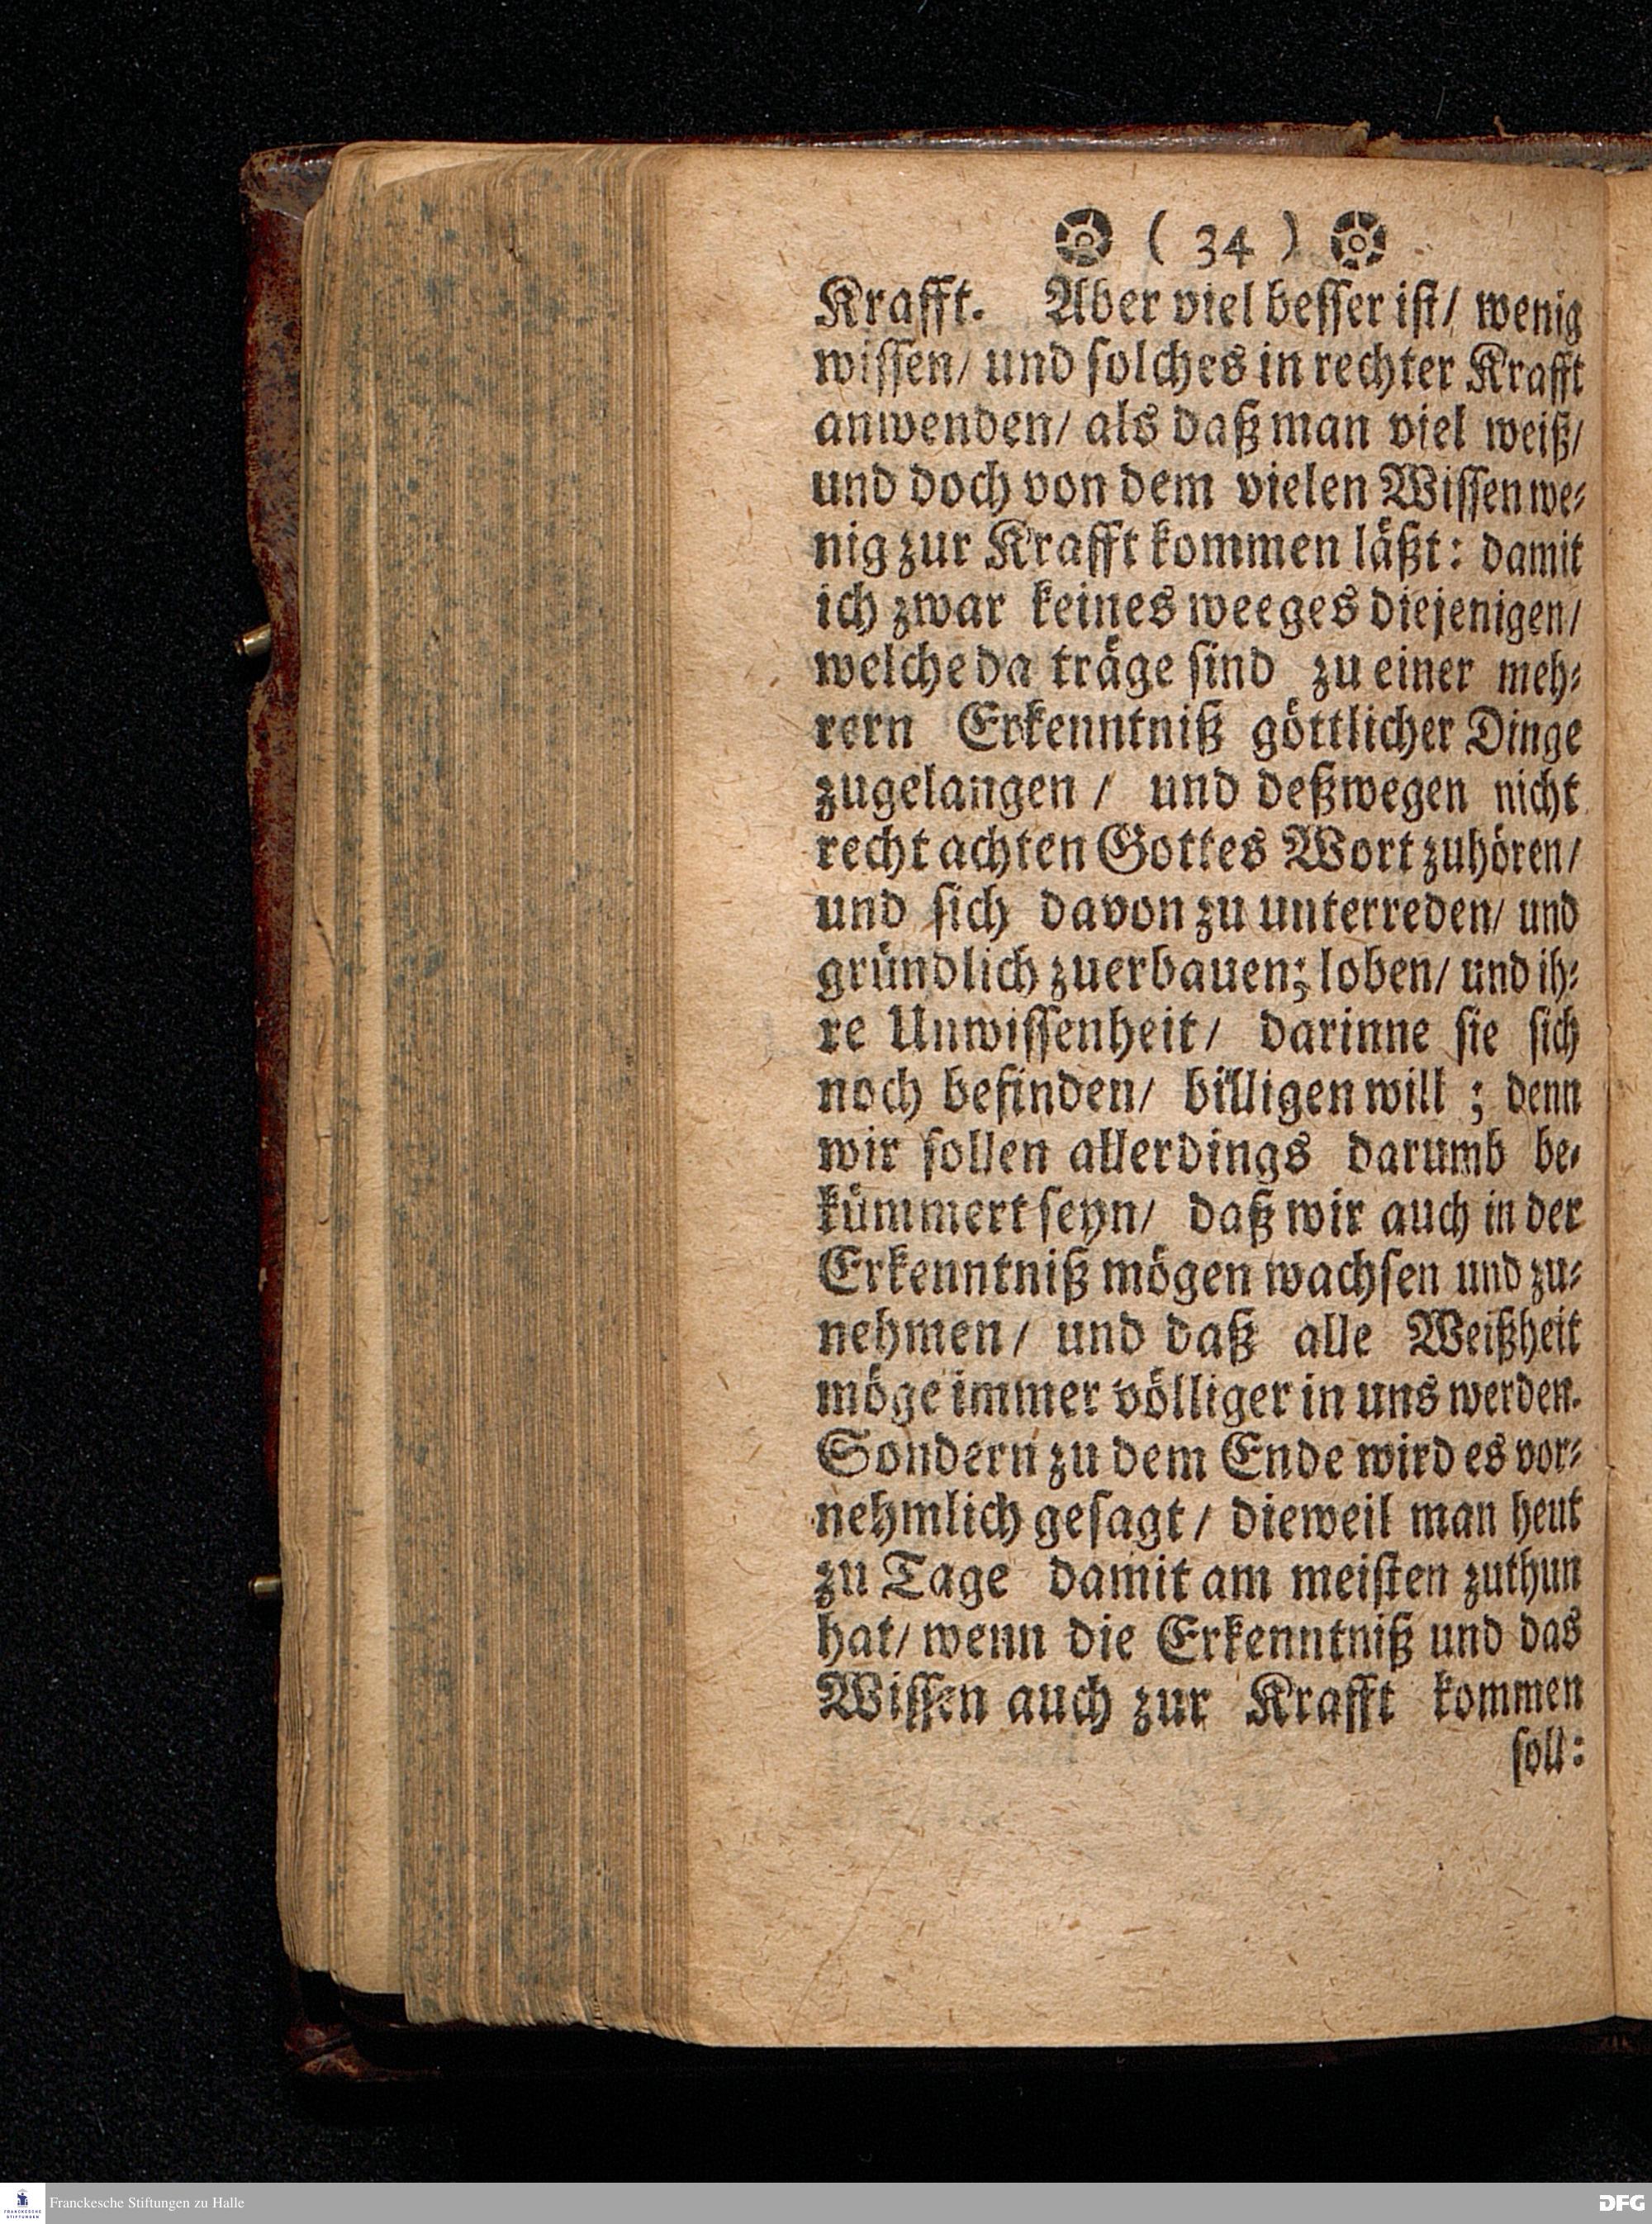 ( 34 )
Krafft. Aber viel besser ist/ wenig
wissen/ und solches in rechter Krafft
anwenden/ als daß man viel weiß/
und doch von dem vielen Wissen we-
nig zur Krafft kommen läßt: damit
ich zwar keines weeges diejenigen/
welche da träge sind zu einer meh-
rern Erkenntniß göttlicher Dinge
zugelangen / und deßwegen nicht
recht achten Gottes Wort zuhören/
und sich davon zu unterreden/ und
gründlich zuerbauen; loben/ und ih-
re Unwissenheit/ darinne sie sich
noch befinden/ billigen will ; denn
wir sollen allerdings darumb be-
kümmert seyn/ daß wir auch in der
Erkenntniß mögen wachsen und zu-
nehmen/ und daß alle Weißheit
möge immer völliger in uns werden.
Sondern zu dem Ende wird es vor-
nehmlich gesagt / dieweil man heut
zu Tage damit am meisten zuthun
hat/ wenn die Erkenntniß und das
Wissen auch zur Krafft kommen
soll:
FRANCKESCHE
STIFTUNGEN
Franckesche Stiftungen zu Halle
DFG